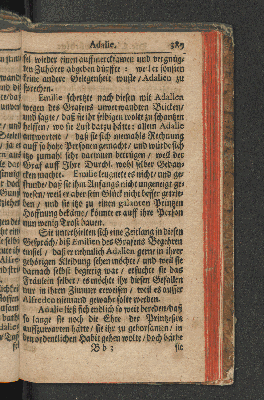 Adalie. 389
sel wieder einen auffmercksamen und vergnüg-
ten Zuhörer abgeben dürffte: weil er sonsten
keine andere Gelegenheit wuste/ Adalien zu
sprechen.
Emilie schertzte nach diesen mit Adalien
wegen des Grafens unverwandten Blicken/
und sagte/ daß sie ihr selbigen wolte zu schantzen
heissen/ wo sie Lust darzu hätte: allein Adalie
antwortete/ daß sie sich niemahls Rechnung
auff so hohe Personen gemacht/ und würde sich
ihr zumahl sehr darinnen betrügen/ weil der
Graf auff Ihre Durchl. wohl selber Gedan-
cken machte. Emilie leugnete es nicht/ und ge-
stunde/ daß sie ihm Anfangs nicht ungeneigt ge-
wesen/ weil er aber sein Glück nicht besser getrie-
ben/ und sie itzo zu einen grössern Printzen
Hoffnung bekäme/ könnte er auff ihre Person
nun wenig Trost bauen.
Sie unterhielten sich eine Zeitlang in diesen
Gespräch/ biß Emilien des Grafens Begehren
einfiel/ daß er nehmlich Adalien gerne in ihrer
gehörigen Kleidung sehen möchte/ und weil sie
darnach selbst begierig war/ ersuchte sie das
Fräulein selber/ es möchte ihr diesen Gefallen
nur in ihren Zimmer erweisen/ weil es ausser
Alfredon niemand gewahr solte werden.
Adalie ließ sich endlich so weit bereden/ daß
so lange sie noch die Ehre der Printzeßin
auffzuwarten hätte/ sie ihr zu gehorsamen/ in
ihren ordentlichen Habit gehen wolte/ doch bäthe
B b 3 sie